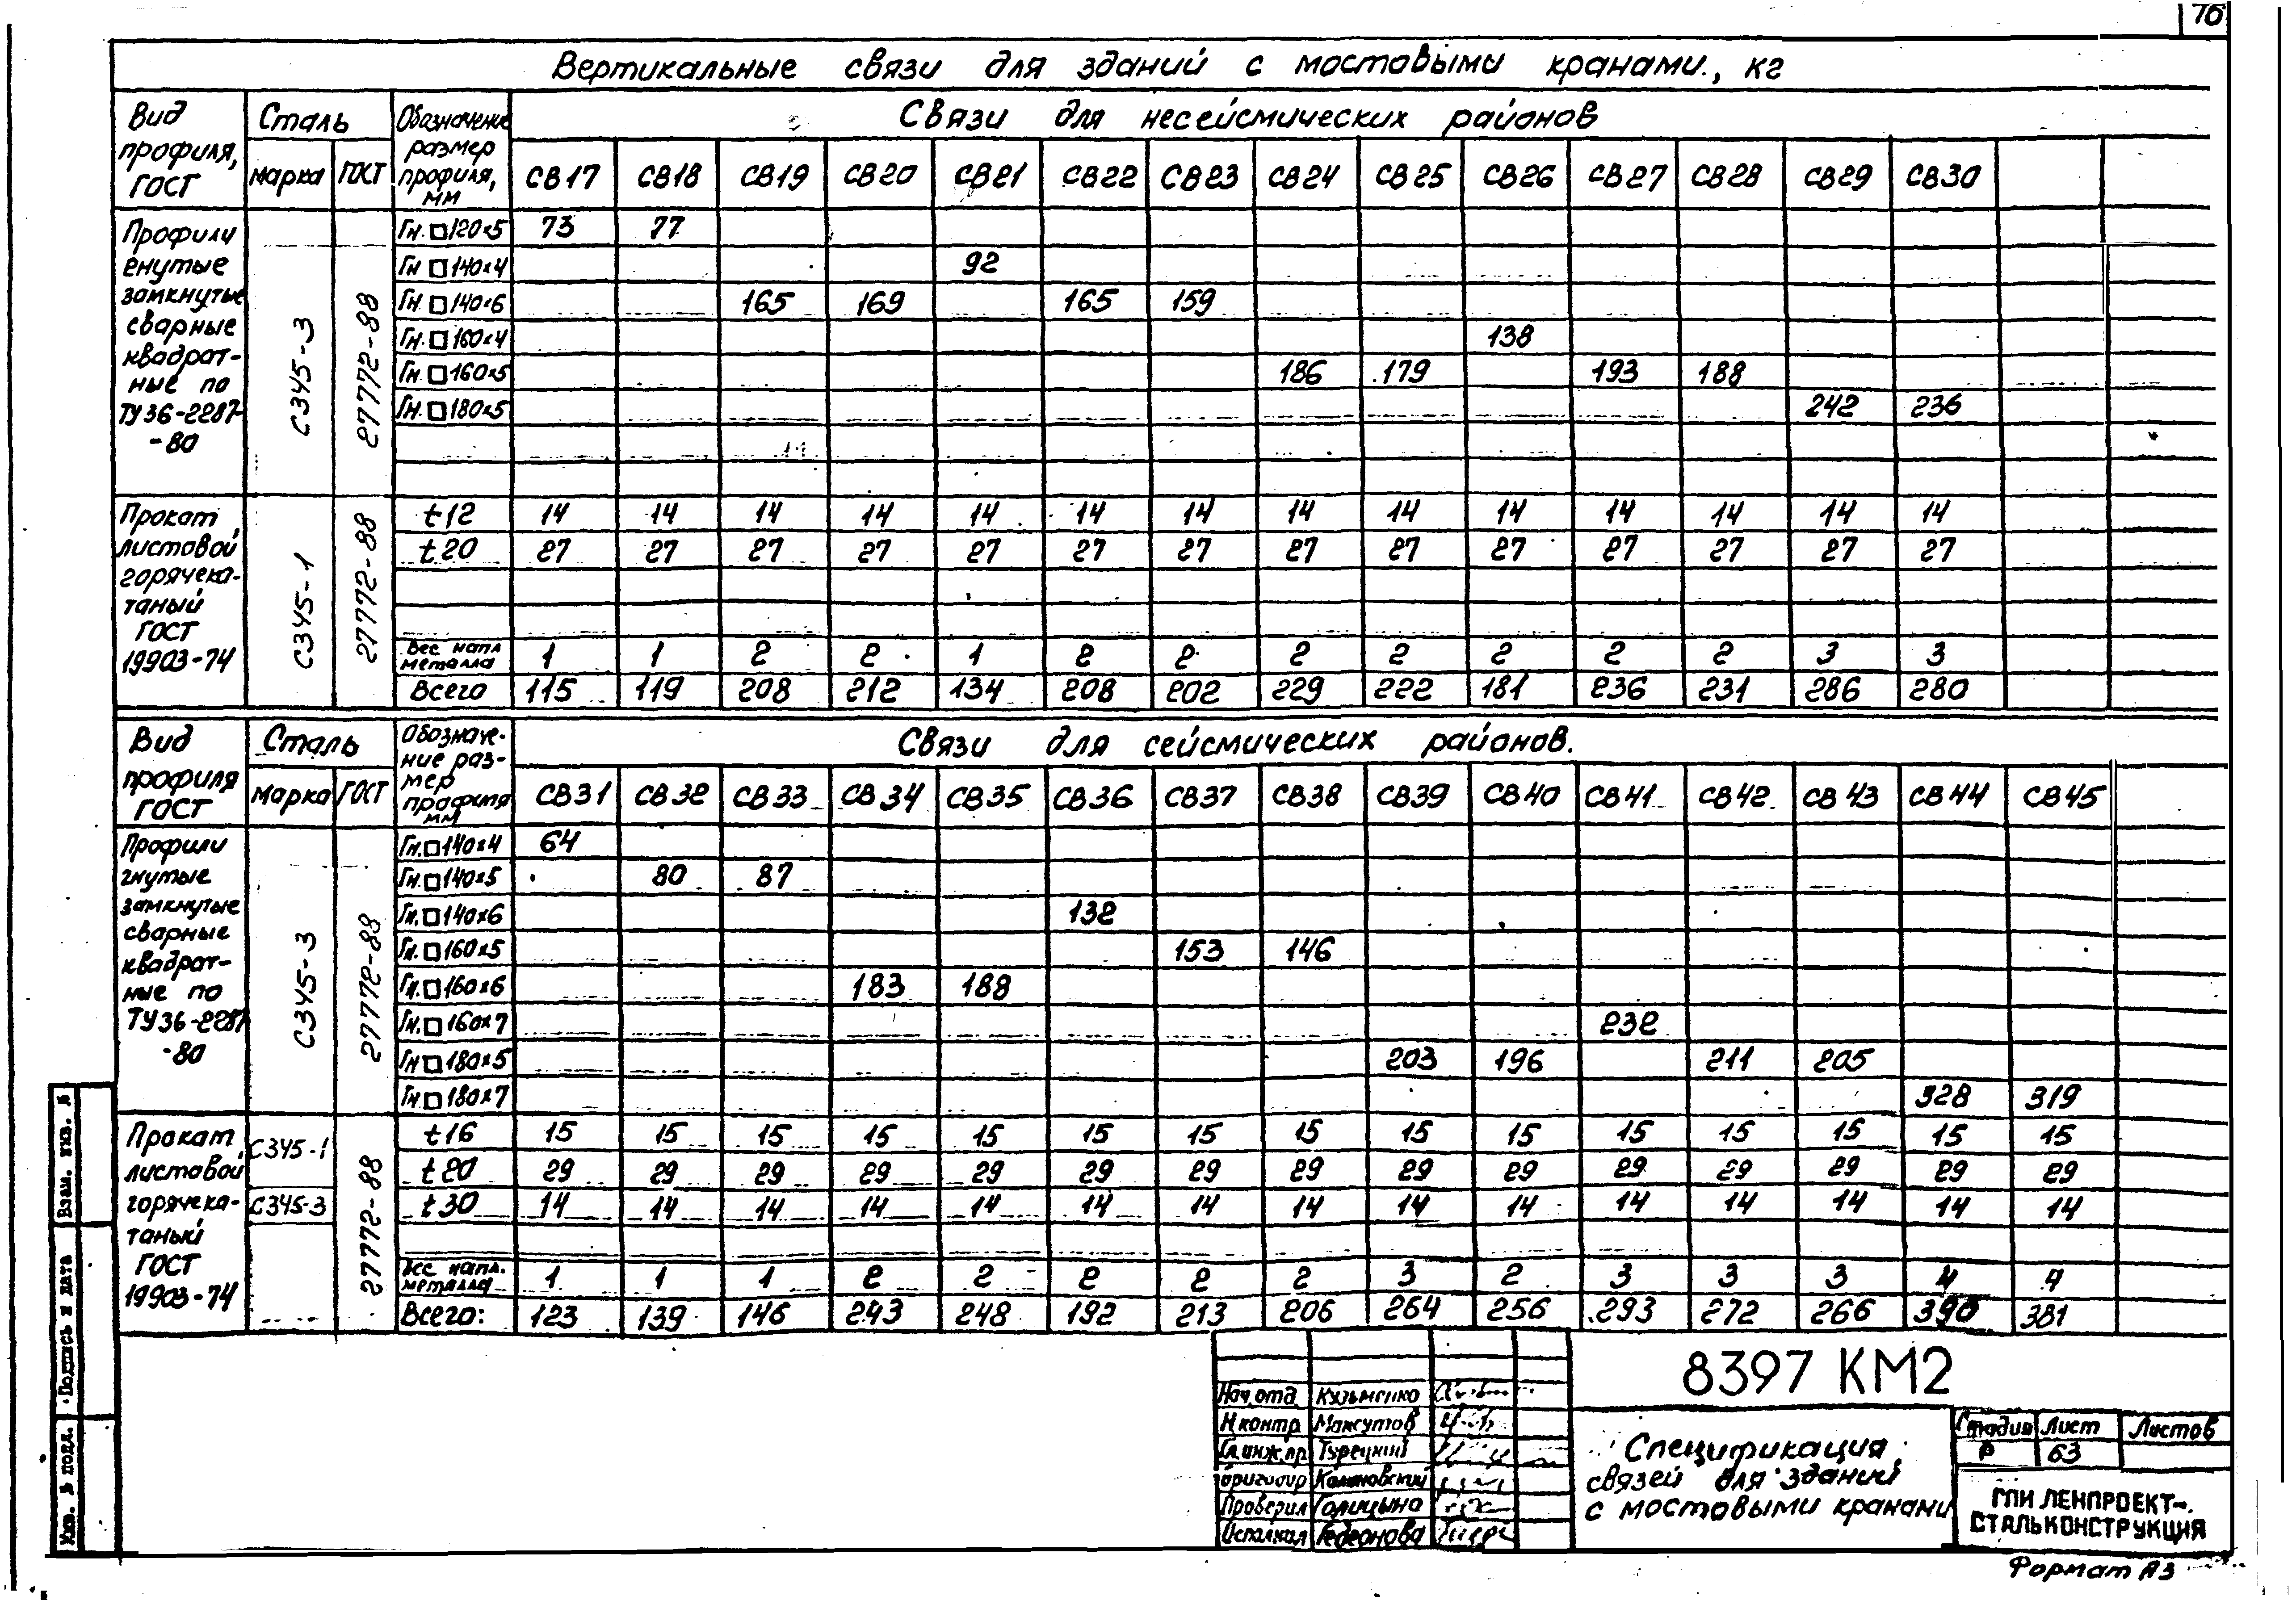 76
Вертикальные связи для зданий с мостовыми кранами., кг
Вид профиля, ГОСТ
Сталь
марка ГОСТ
Обозначение размер профиля, мм
Связи для несейсмических районов
СВ17 СВ18 СВ19 СВ20 СВ21 СВ22 СВ23 СВ24 СВ25 СВ26 СВ27 СВ28 СВ29 СВ30
Профили
гнутые
замкнутые
сварные
квадрат-
ные по
ТУ36-2287-
-80
С345-3
27772-88
Гн. □120×5 73 77
Гн □140×4 92
Гн □140×6 165 169 165 159
Гн. □160×4 138
Гн. □160×5 186 179 193 188
Гн. □180×5 242 236
Прокат
листовой
горячека-
таный
ГОСТ
19903-74
С345-1
27772-88
t12 14 14 14 14 14 14 14 14 14 14 14 14 14 14
t20 27 27 27 27 27 27 27 27 27 27 27 27 27 27
Вес напл металла 1 1 2 2 1 2 2 2 2 2 2 2 3 3
Всего 115 119 208 212 134 208 202 229 222 181 236 231 286 280
Вид профиля ГОСТ
Сталь
марка ГОСТ
Обозначе-
ние раз-
мер
профиля
мм
Связи для сейсмических районов.
СВ31 СВ32 СВ33 СВ34 СВ35 СВ36 СВ37 СВ38 СВ39 СВ40 СВ41 СВ42 СВ43 СВ44 СВ45
Профили
гнутые
замкнутые
сварные
квадрат-
ные по
ТУ36-2287
-80
С345-3
27772-88
Гн. □140×4 64
Гн. □140×5 80 87
Гн. □140×6 132
Гн. □160×5 153 146
Гн. □160×6 183 188
Гн. □160×7 232
Гн □180×5 203 196 211 205
Гн □180×7 328 319
Прокат
листовой
горячека-
таный
ГОСТ
19903-74
С345-1
С345-3
27772-88
t16 15 15 15 15 15 15 15 15 15 15 15 15 15 15 15
t20 29 29 29 29 29 29 29 29 29 29 29 29 29 29 29
t30 14 14 14 14 14 14 14 14 14 14 14 14 14 14 14
Вес напл. металла 1 1 1 2 2 2 2 2 3 2 3 3 3 4 4
Всего: 123 139 146 243 248 192 213 206 264 256 293 272 266 390 381
Взам. инв. №
Подпись и дата
Инв. № подл.
Нач. отд. Кузьменко
Н контр Максутов
Гл. инж. пр. Турецкий
Бригадир Каминовский
Проверил Голицына
Исполнил Гедеонова
8397 КМ2
Спецификация
связей для зданий
с мостовыми кранами
Стадия Лист Листов
Р 63
ГПИ ЛЕНПРОЕКТ-
СТАЛЬКОНСТРУКЦИЯ
Формат А3